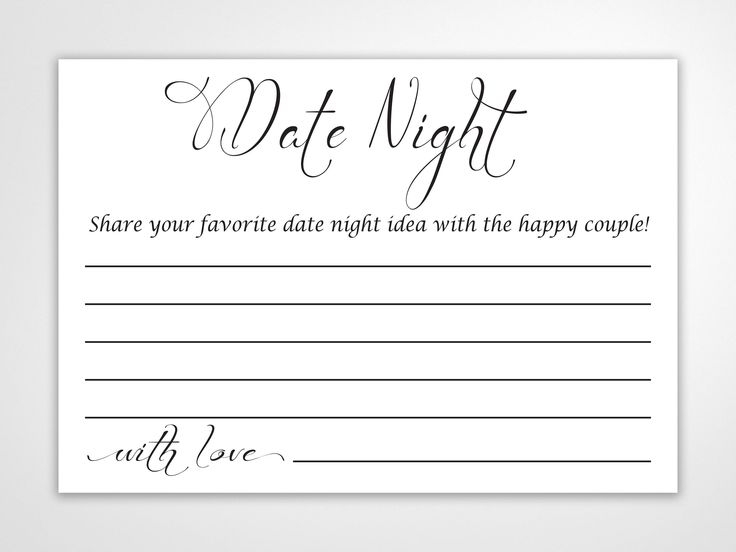 Date Night
Share your favorite date night idea with the happy couple!
with love